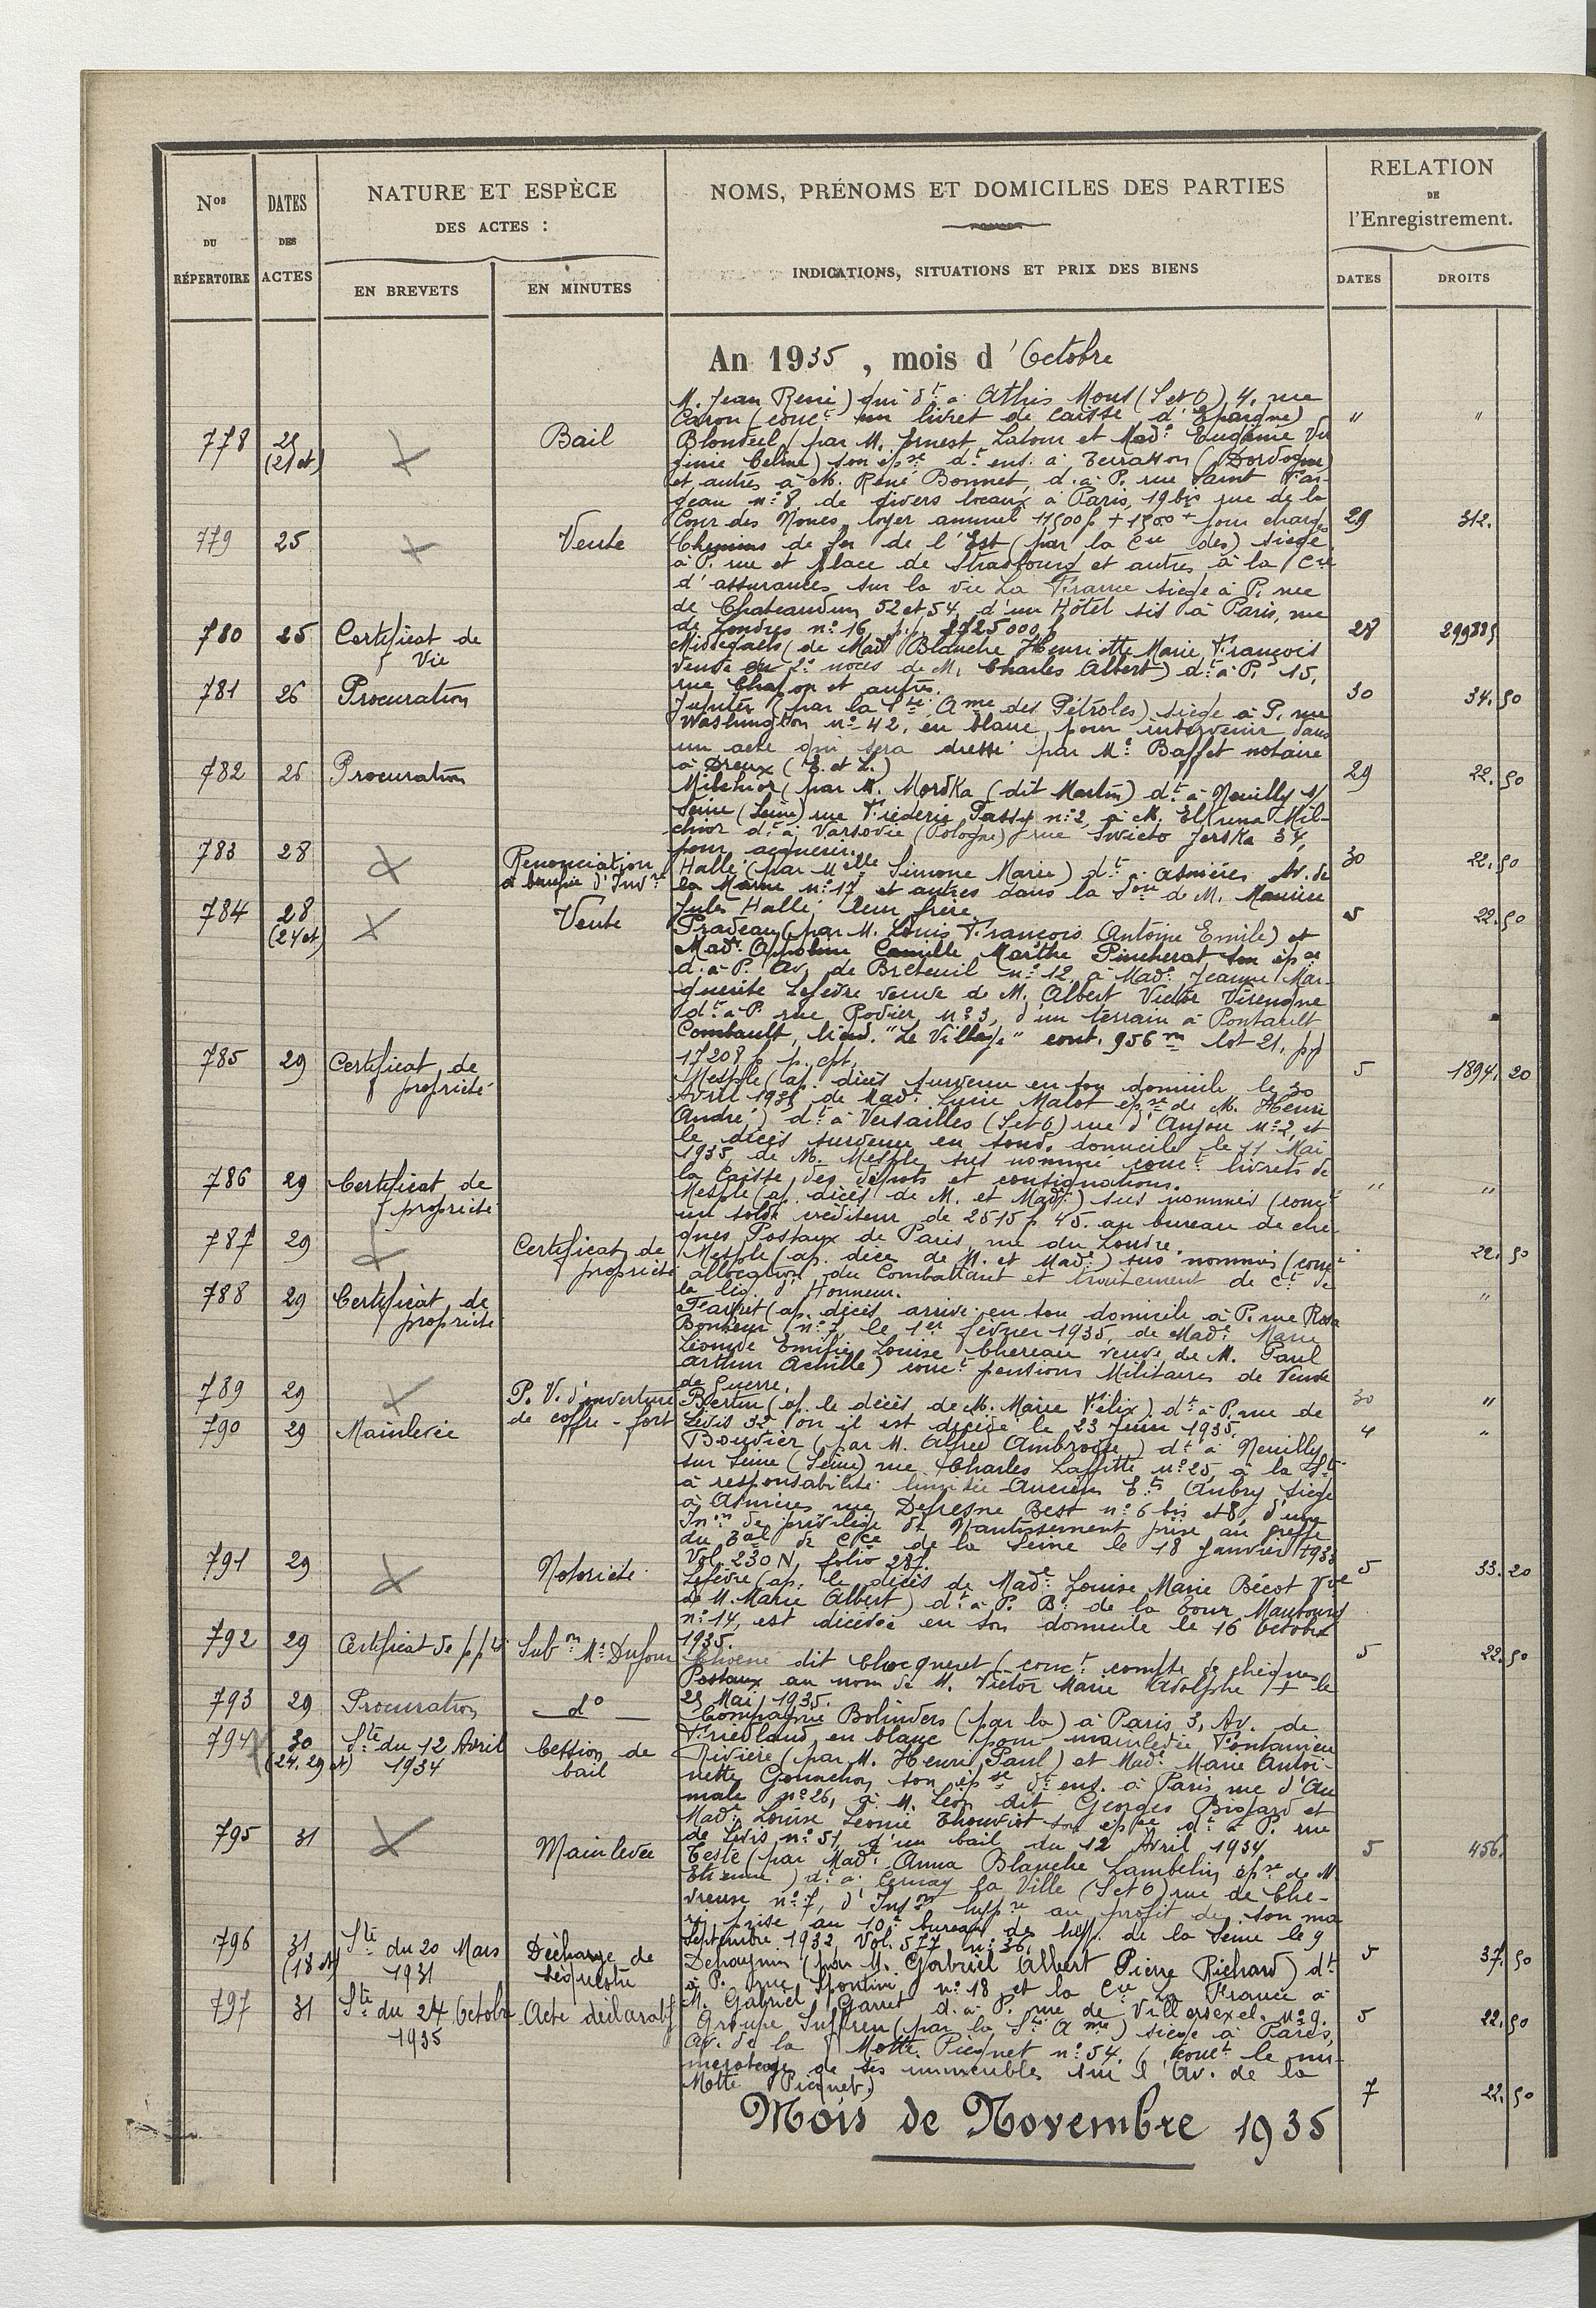 Nos DU RÉPERTOIRE
DATES DES ACTES
NATURE ET ESPÈCE DES ACTES :
EN BREVETS
EN MINUTES
NOMS, PRÉNOMS ET DOMICILES DES PARTIES
INDICATIONS, SITUATIONS ET PRIX DES BIENS
RELATION DE l'Enregistrement.
DATES
DROITS
An 1935, mois d'Octobre
M. Jean René) qui dt à Athis Mons (S et O), 4, rue
Caron (conct un livret de caisse d'Epargne) " "
778 25 (21 et) X Bail Blondeel (par M. Ernest Latour et Made Eugénie Vir
ginie Celine) son épse dt ens. à Terrasson (Dordogne)
et autres à M. René Bonnet, d. à P. rue Saint Far-
geau no 8, de divers locaux à Paris, 19 bis rue de la
Cour des Noues, loyer annuel 11500 f + 1500 + pour charges 29 312.
779 25 X Vente Chemins de fer de l'Est (par la Cie des) siège
à P. rue et place de Strasbourg et autres à la Cie
d'assurances sur la vie La France siège à P. rue
de Chateaudun 52 et 54, d'un Hôtel sis à Paris, rue
de Londres no 16, p.p. 2725000 f 28 299885
780 25 Certificat de Vie (de Made Blanche Henriette Marie François
veuve en 2e noces de M. Charles Albert) dt à P. 15,
rue Chapon et autres. 30 34.50
781 26 Procuration Jupiter (par la Sté Ame des Pétroles) siège à P. rue
Washington no 42, en blanc pour intervenir dans
un acte qui sera dressé par Me Baffet notaire
à Dreux (E. et L.) 29 22.50
782 26 Procuration Milchior (par M. Mordka (dit Martin) dt à Neuilly s/
Seine (Seine) rue Frédéric Passy no 2, à M. Elkuna Mil-
chior dt à Varsovie (Pologne) rue Swieto Jerska 34,
pour acquérir. 30 22.50
783 28 X Renonciation à bénéfice d'Invre Hallé (par Melle Simone Marie) dt à Asnières Av. de
la Marne no 17, et autres dans la Son de M. Maurice
Jules Hallé, leur frère. 5 22.50
784 28 (24 et) X Vente Pradeau (par M. Louis François Antoine Emile) et
Made Appoline Camille Marthe Pincherat son épse
d. à P. Av. de Breteuil no 12, à Made Jeanne Mar-
guerite Lefevre veuve de M. Albert Victor Virengue
dt à P. rue Rodier no 3, d'un terrain à Pontault
Combault, lieud. "Le Village" cont. 956 m lot 21, pp
17208 f p. cpt. 5 1894.20
785 29 Certificat de propriété Mesple (ap. décès survenu en son domicile le 30
Avril 1935 de Made Lucie Malot épse de M. Henri
André) dt à Versailles (S et O) rue d'Anjou no 2, et
le décès survenu en sond. domicile le 11 Mai
1935, de M. Mesple sus nommé conct livrets de
la Caisse des dépôts et consignations. " "
786 29 Certificat de propriété Mesple (ap. décès de M. et Made) sus nommés (conct
un solde créditeur de 2515 f 45. au bureau de chè
ques Postaux de Paris, rue du Louvre. 22.50
787 29 X Certificat de propriété Mesple (ap. décès de M. et Made) sus nommés (conct
allocation du Combattant et traitement de ct de
la lég. d'Honneur. "
788 29 Certificat de propriété (ap. décès arrivé en son domicile à P. rue Rosa
Bonheur no 7, le 1er février 1935, de Made Marie
Léonide Emilie Louise Chereau veuve de M. Paul
Arthur Achille) conct pensions Militaires de Veuve
de Guerre. 30 "
789 29 X P. V. d'ouverture de coffre-fort Bertin (ap. le décès de M. Marie Félix) dt à P. rue de
Lévis 32, où il est décédé le 23 Juin 1935. 4 "
790 29 Mainlevée Bouvier (par M. Alfred Ambroise) dt à Neuilly
sur Seine (Seine) rue Charles Laffitte no 25, à la Sté
à responsabilité limitée Anciens Ets Aubry siège
à Asnières rue Defresne Bast no 6 bis et 8, d'une
Inon de privilège de Nantissement prise au greffe
du Bal de Cce de la Seine le 18 Janvier 1933
Vol. 230 N, folio 287. 5 33.20
791 29 X Notoriété Lefèvre (ap. le décès de Made Louise Marie Bécot Vve
de M. Marie Albert) dt à P. Bd de la Tour Maubourg
no 14, est décédée en son domicile le 16 Octobre
1935. 5 22.50
792 29 Certificat de ppté Subon Me Dufour dit Chocqueret (conct compte de chèques
Postaux au nom de M. Victor Marie Adolphe) + le
25 Mai 1935.
793 29 Procuration do Compagnie Bolinders (par la) à Paris, 3, Av. de
Friedland, en blanc pour mainlevée Fontanieu
794 30 (24. 29 et) Sté du 12 Avril 1934 Cession de bail Rivière (par M. Henri Paul) et Made Marie Antoi-
nette Gounechon son épse dt ens. à Paris rue d'Au
male no 26, à M. Léon dit Georges Bispard et
Made Louise Léonie Thouviot son épse dt à P. rue
de Lévis no 51, d'un bail du 12 Avril 1934 5 456.
795 31 X Mainlevée Teste (par Made Anna Blanche Lambelin épse de M.
Etienne) dt à Cernay la Ville (S et O) rue de Che-
vreuse no 7, d'Inson hypre au profit de son ma
ri prise au 10e bureau des hyp. de la Seine le 9
Septembre 1932, Vol. 577 no 36. 5 37.50
796 31 (18 et) Sté du 20 Mars 1931 Décharge de séquestre (par M. Gabriel Albert Pierre Richard) dt
à P. rue Spontini no 18, et la Cie La France à
M. Gabriel Garret d. à P. rue de Villersexel. no 9. 5 22.50
797 31 Sté du 24 Octobre 1935 Acte déclaratif Groupe Suffren (par la Sté Ame) siège à Paris,
Av. de la Motte Picquet no 54, (conct le nu-
mérotage de ses immeubles sur l'Av. de la
Motte Picquet.) 7 22.50
Mois de Novembre 1935